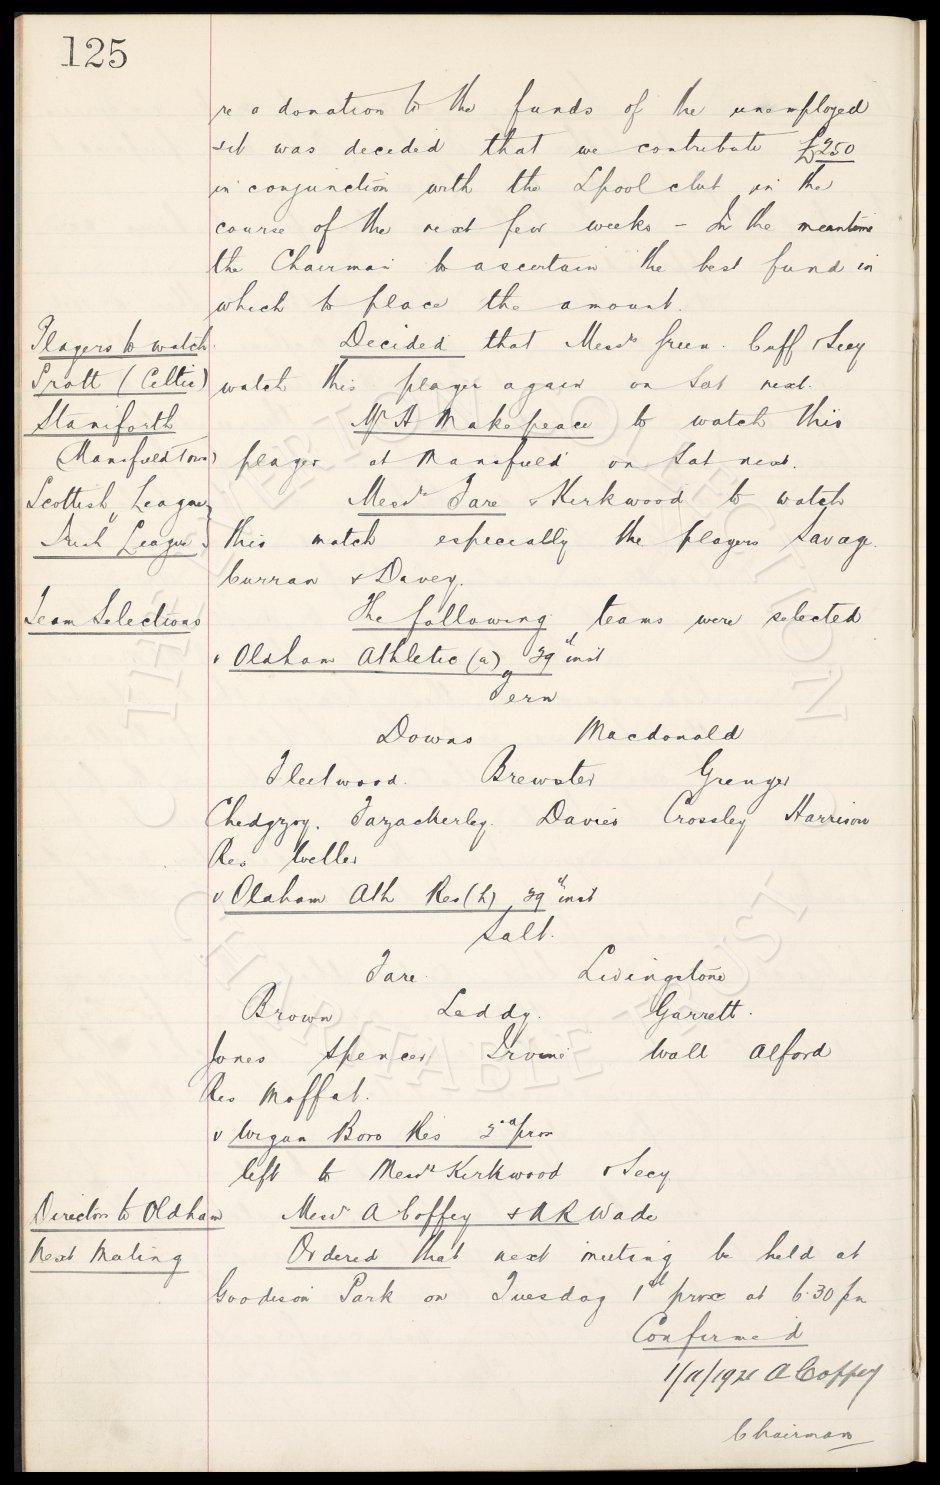 125
re a donation to the funds of the unemployed
& it was decided that we contribute £250
in conjunction with the Lpool club in the
course of the next few weeks - In the meantime
the Chairman to ascertain the best fund in
which to place the amount.
Players to watch Decided that Messrs Green. Cuff & Secy
Pratt (Celtic) watch this player again on Sat next.
Staniforth Mr H Makepeace to watch this
(Mansfield Town) player at Mansfield on Sat next.
Scottish League Messrs Fare & Kirkwood to watch
v Irish League this match especially the players Savage.
Curran & Davey.
Team Selections The following teams were selected
v Oldham Athletic (a) 29th inst
Fern
Downs Macdonald
Fleetwood. Brewster Grenyer
Chedgzoy. Fazackerley. Davies Crossley Harrison
Res Weller
v Oldham Ath Res (h) 29th inst
Salt.
Fare. Livingstone
Brown Leddy. Garrett.
Jones Spencer Irvine Wall Alford
Res Moffat.
v Wigan Boro Res 2nd prox
left to Messrs Kirkwood & Secy
Directors to Oldham Messrs A Coffey & A R Wade
Next Meeting Ordered that next meeting be held at
Goodison Park on Tuesday 1st prox at 6.30 pm
Confirmed
1/11/1921 A Coffey
Chairman
THE EVERTON COLLECTION
CHARITABLE TRUST